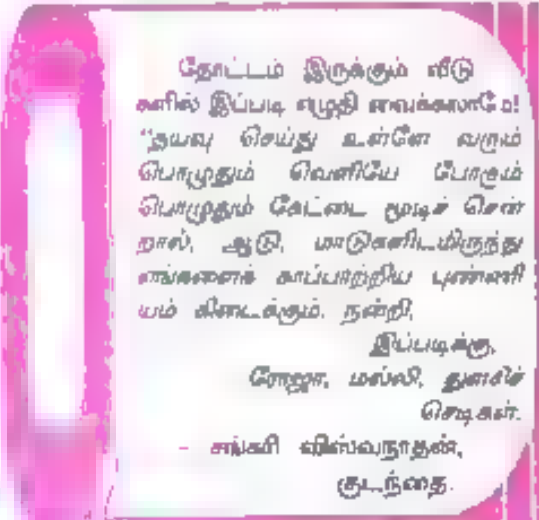 தோட்டம் இருக்கும் வீடு
களில் இப்படி எழுதி வைக்கலாமே!
"தயவு செய்து உள்ளே வரும்
பொழுதும் வெளியே போகும்
பொழுதும் கேட்டை மூடிச் சென்
றால், ஆடு, மாடுகளிடமிருந்து
எங்களைக் காப்பாற்றிய புண்ணி
யம் கிடைக்கும். நன்றி,
இப்படிக்கு,
ரோஜா, மல்லி, துளசிச்
செடிகள்.
- சங்கரி விஸ்வநாதன்,
குடந்தை.